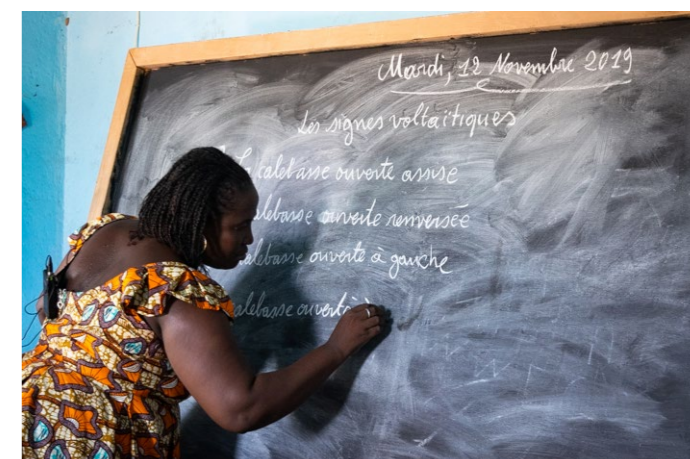 Mardi, 12 Novembre 2019
Les signes voltaïtiques
calebasse ouverte assise
calebasse ouverte renversée
calebasse ouverte à gauche
calebasse ouverte